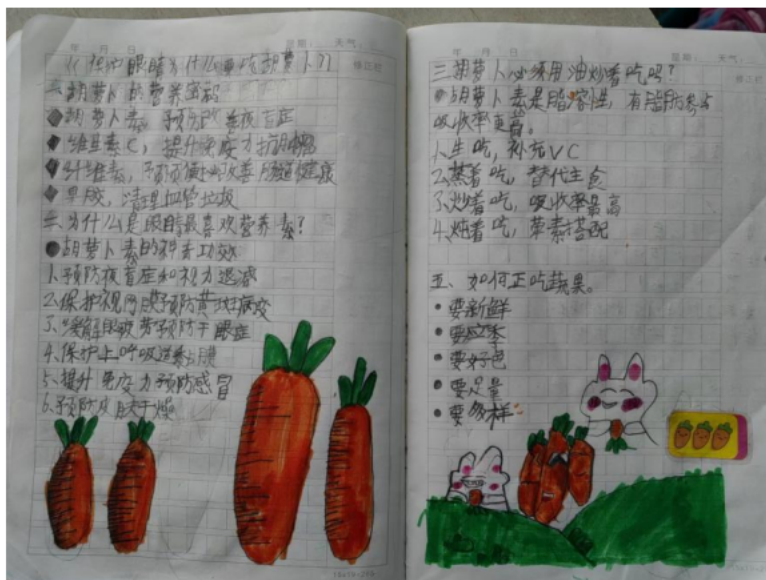 年 月 日 星期： 天气：
《保护眼睛为什么要吃胡萝卜》
一、胡萝卜的营养密码
胡萝卜素，预防改善夜盲症
维生素C，提升免疫力抗肿瘤
纤维素，预防便秘改善肠道健康
果胶，清理血管垃圾
二、为什么是眼睛最喜欢营养素？
胡萝卜素的科学功效
1、预防夜盲症和视力退减
2、保护视网膜预防黄斑病变
3、缓解眼疲劳预防干眼症
4、保护上呼吸道黏膜
5、提升免疫力预防感冒
6、预防皮肤干燥
年 月 日 星期： 天气：
三、胡萝卜必须用油炒着吃吗？
胡萝卜素是脂溶性，有脂肪参与
吸收率更高。
1、生吃，补充VC
2、蒸着吃，替代主食
3、炒着吃，吸收率最高
4、炖着吃，荤素搭配
五、如何正吃蔬果。
要新鲜
要应季
要好色
要足量
要多样